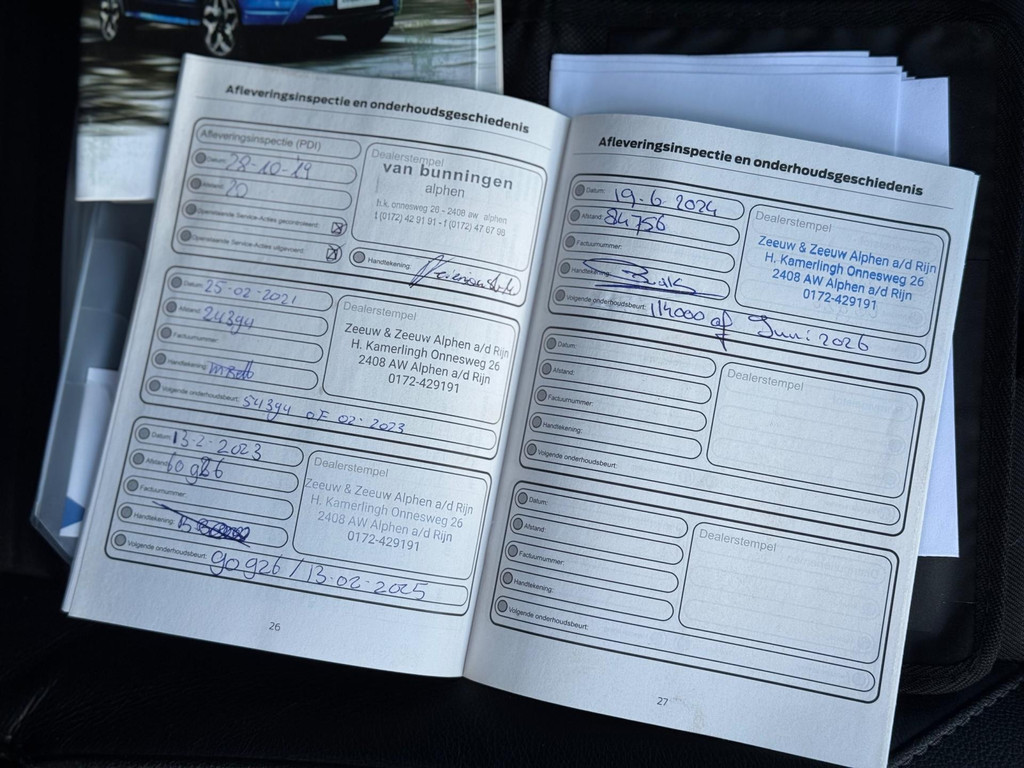 Afleveringsinspectie en onderhoudsgeschiedenis
Afleveringsinspectie (PDI)
Datum: 28-10-'19
Afstand: 20
Openstaande Service-Acties gecontroleerd:
Openstaande Service-Acties uitgevoerd:
Dealerstempel
van bunningen
alphen
h.k. onnesweg 26 - 2408 aw alphen
t (0172) 42 91 91 - f (0172) 47 67 96
Handtekening:
Datum: 25-02-2021
Afstand: 24394
Factuurnummer:
Handtekening:
Volgende onderhoudsbeurt: 54394 OF 02-2023
Dealerstempel
Zeeuw & Zeeuw Alphen a/d Rijn
H. Kamerlingh Onnesweg 26
2408 AW Alphen a/d Rijn
0172-429191
Datum: 13-2-2023
Afstand: 60926
Factuurnummer:
Handtekening:
Volgende onderhoudsbeurt: 90926 / 13-02-2025
Dealerstempel
Zeeuw & Zeeuw Alphen a/d Rijn
H. Kamerlingh Onnesweg 26
2408 AW Alphen a/d Rijn
0172-429191
26
Afleveringsinspectie en onderhoudsgeschiedenis
Datum: 19-6-2024
Afstand: 84756
Factuurnummer:
Handtekening:
Volgende onderhoudsbeurt: 114000 of Juni 2026
Dealerstempel
Zeeuw & Zeeuw Alphen a/d Rijn
H. Kamerlingh Onnesweg 26
2408 AW Alphen a/d Rijn
0172-429191
Datum:
Afstand:
Factuurnummer:
Handtekening:
Volgende onderhoudsbeurt:
Dealerstempel
Datum:
Afstand:
Factuurnummer:
Handtekening:
Volgende onderhoudsbeurt:
Dealerstempel
27